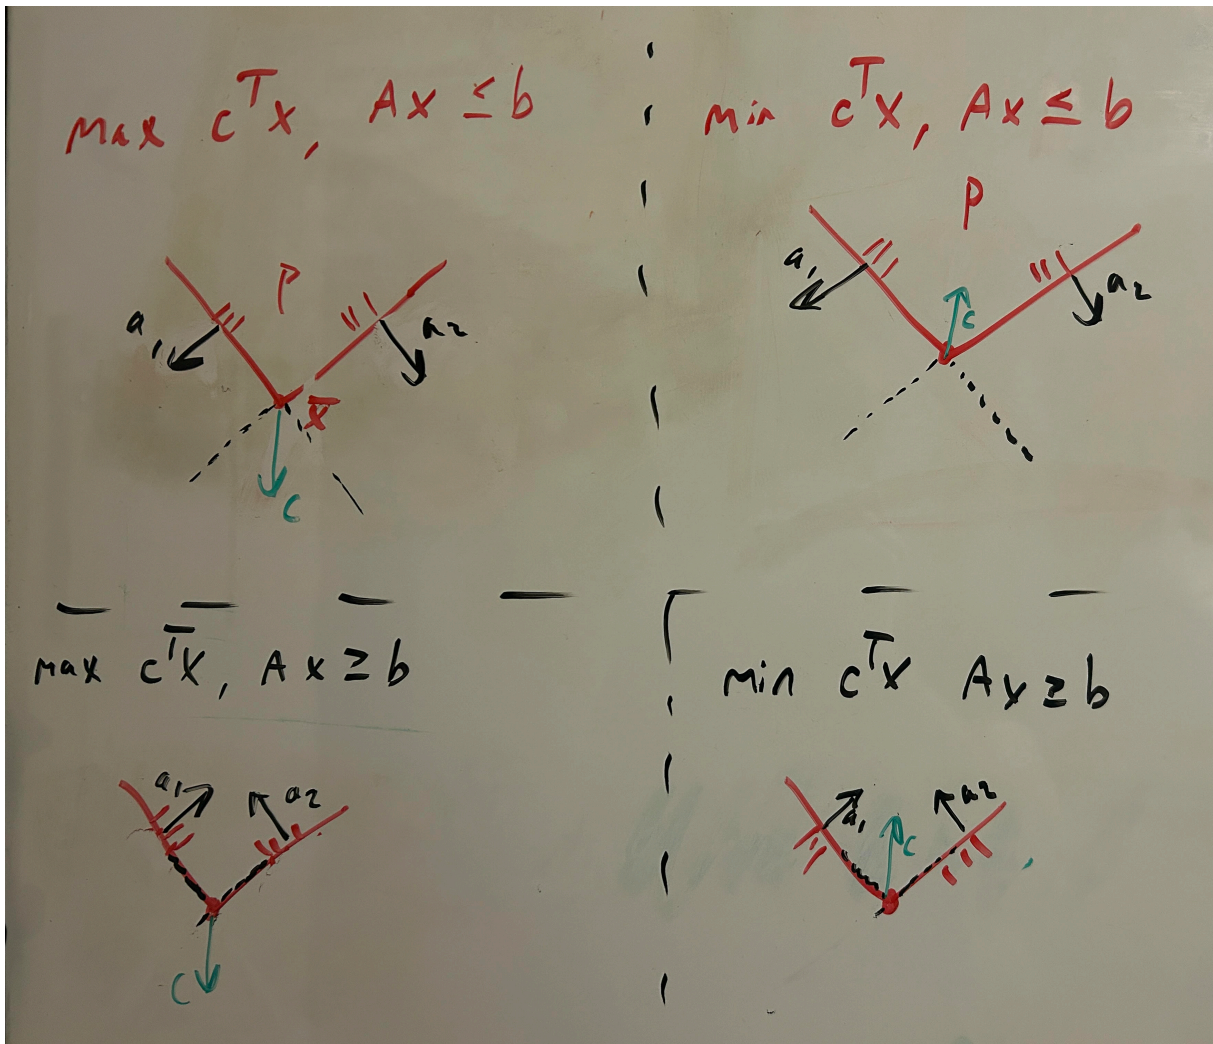 max cᵀx, Ax ≤ b
P
a₁
a₂
x̄
c
min cᵀx, Ax ≤ b
P
a₁
a₂
c
max cᵀx, Ax ≥ b
a₁
a₂
c
min cᵀx Ax ≥ b
a₁
a₂
c